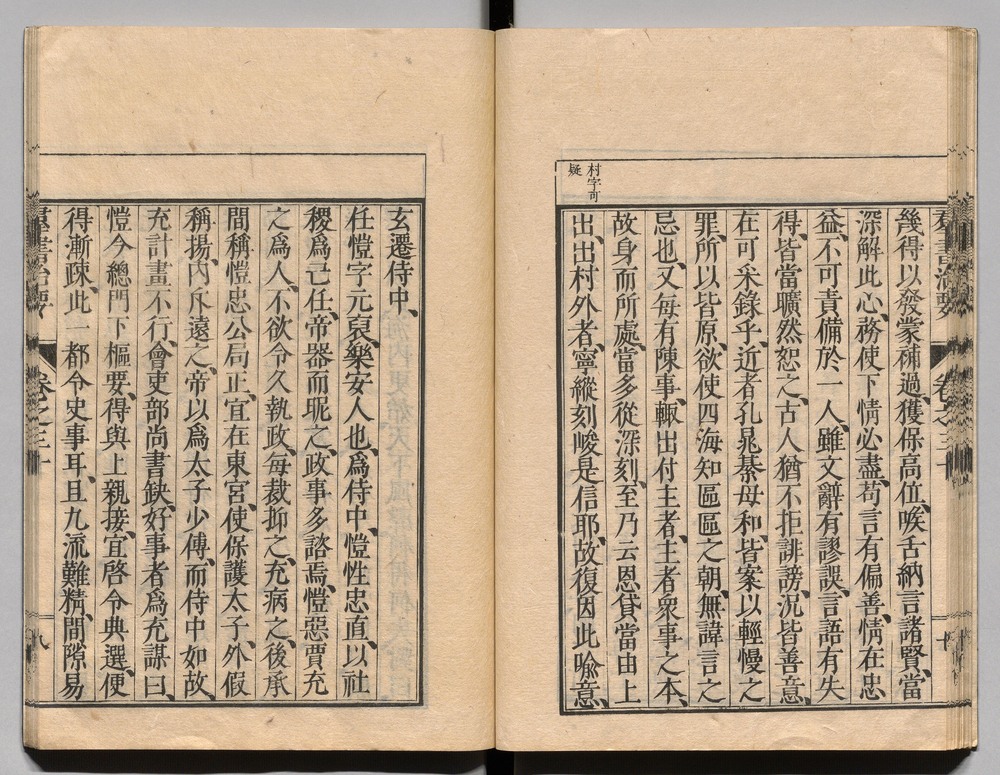 村字可
疑
羣書治要　卷之三十
幾得以發蒙補過、獲保高位、喉舌納言諸賢、當
深解此心、務使下情必盡、苟言有偏善、情在忠
益、不可責備於一人、雖文辭有謬誤、言語有失
得、皆當曠然恕之、古人猶不拒誹謗、況皆善意、
在可采錄乎、近者孔晁綦毋和、皆案以輕慢之
罪、所以皆原、欲使四海知區區之朝、無諱言之
忌也、又每有陳事、輙出付主者、主者衆事之本、
故身而所處、當多從深刻、至乃云恩貸當由上
出、出村外者、寧縱刻峻是信耶、故復因此喩意、
玄遷侍中、
任愷字元褱、樂安人也、爲侍中、愷性忠直、以社
稷爲己任、帝器而昵之、政事多諮焉、愷惡賈充
之爲人、不欲令久執政、每裁抑之、充病之、後承
間稱愷忠公局正、宜在東宮、使保護太子、外假
稱揚、内斥遠之、帝以爲太子少傅、而侍中如故、
充計畫不行、會吏部尚書缺、好事者爲充謀曰、
愷今總門下樞要、得與上親接、宜啓令典選、便
得漸疎、此一都令史事耳、且九流難精、間隙易
羣書治要　卷之三十　八